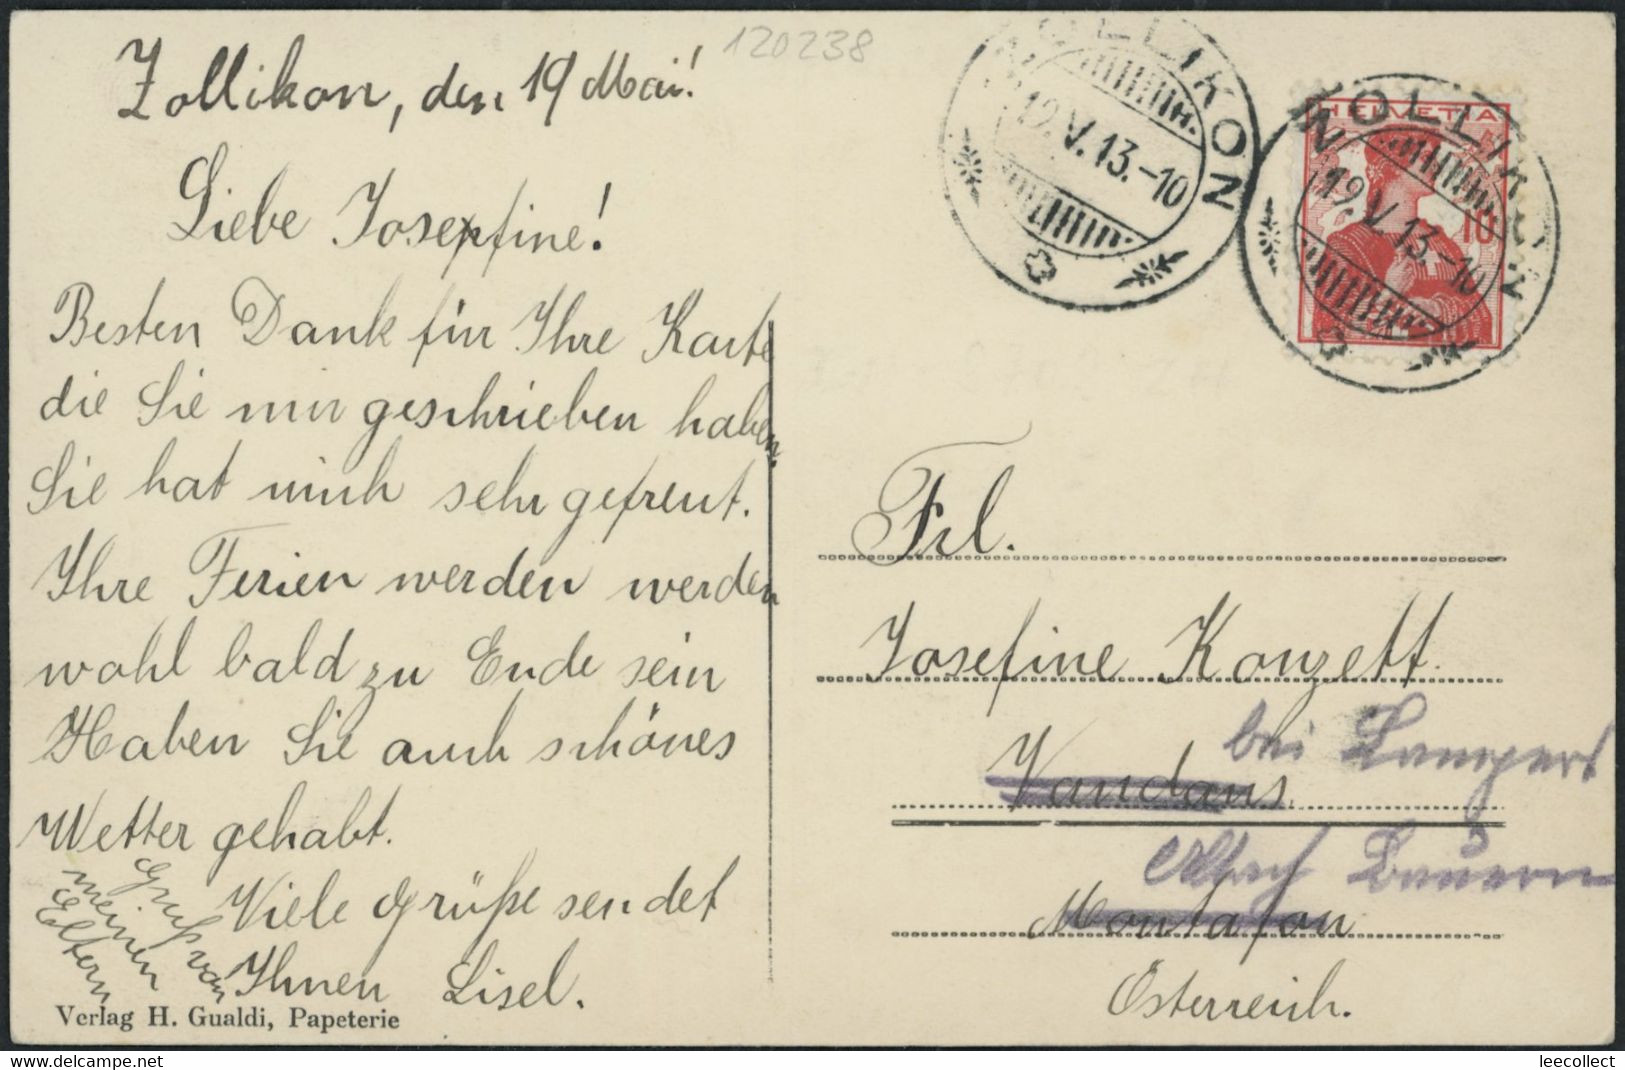 120238
Zollikon, den 19 Mai!
Liebe Josefine!
Besten Dank für Ihre Karte
die Sie mir geschrieben haben.
Sie hat mich sehr gefreut.
Ihre Ferien werden werden
wohl bald zu Ende sein
Haben Sie auch schönes
Wetter gehabt.
Viele Grüße sendet
Ihnen Lisel.
Gruß von
meinen
Eltern
Verlag H. Gualdi, Papeterie
ZOLLIKON
19.V.13.-10
HELVETIA
10
ZOLLIKON
19.V.13.-10
Frl.
Josefine Konzett.
Vandans.
bei Lampert
Montafon
Österreich.
leecollect